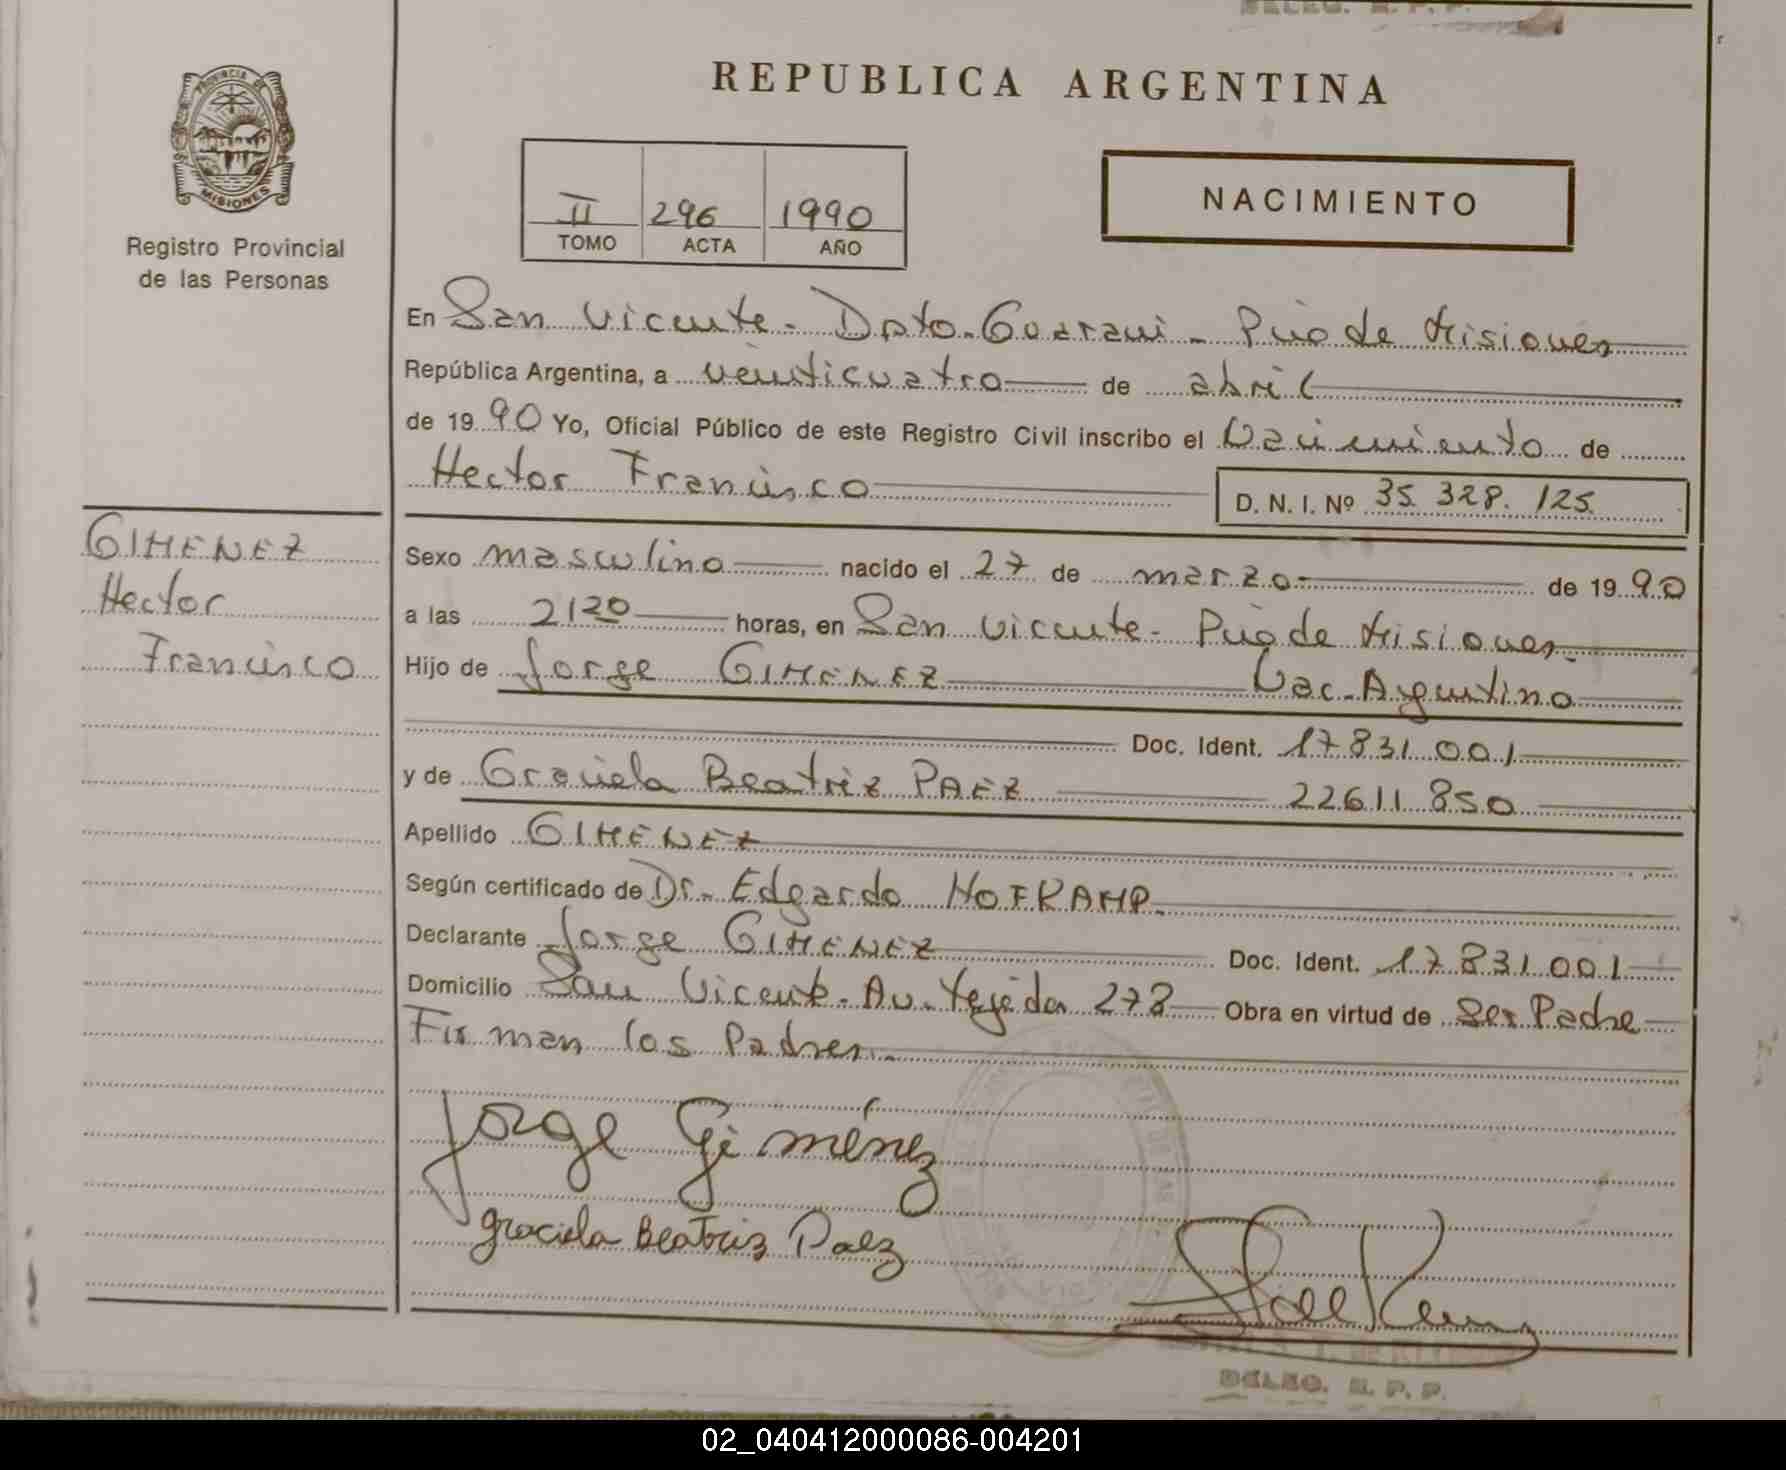 DELEG. R. P. P.
REPUBLICA ARGENTINA
PROVINCIA DE
MISIONES
Registro Provincial
de las Personas
II 296 1990
TOMO ACTA AÑO
NACIMIENTO
En San Vicente - Dpto. Guarani - Pcio de Misiones
República Argentina, a veinticuatro de abril
de 1990 Yo, Oficial Público de este Registro Civil inscribo el Nacimiento de
Hector Francisco
D. N. I. Nº 35.328.125
GIMENEZ
Hector
Francisco
Sexo masculino nacido el 27 de marzo de 1990
a las 2120 horas, en San Vicente - Pcio de Misiones.
Hijo de Jorge GIMENEZ Nac. Argentino
Doc. Ident. 17.831.001
y de Graciela Beatriz PAEZ 22611.850
Apellido GIMENEZ
Según certificado de Dr. Edgardo
Declarante Jorge GIMENEZ Doc. Ident. 17.831.001
Domicilio San Vicente - Av. Tejeda 278 Obra en virtud de Ser Padre
Firman los Padres.
Jorge Giménez
graciela Beatriz Paez
DELEG. R. P. P.
02_040412000086-004201